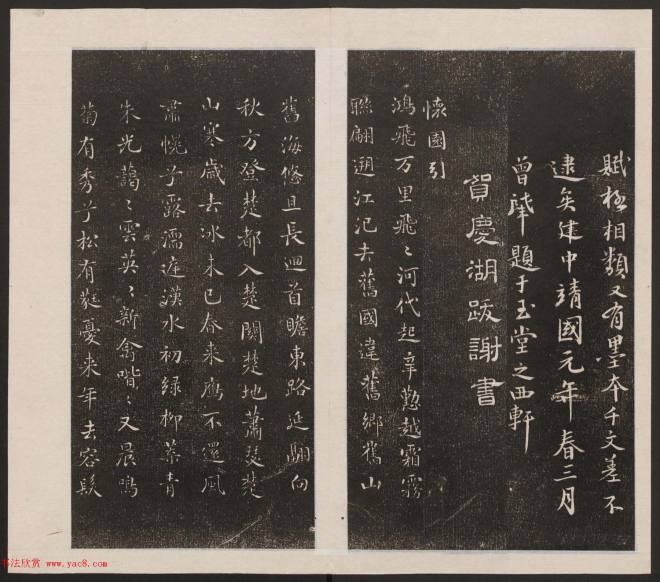 賦極相類又有墨本千文差不
逮矣建中靖國元年春三月
曾肇題于玉堂之西軒
賀慶湖跋謝書
懷園引
鴻飛万里飛〻河代起辛懃越霜霧
聯翩遡江汜去舊國違舊鄉舊山
舊海悠且長迴首瞻東路延翮向
秋方登楚都入楚關楚地蕭瑟楚
山寒歲去冰未已春來鴈不還風
肅幌兮露濡庭漢水初綠柳葉青
朱光藹〻雲英〻新禽喈〻又晨鳴
菊有秀兮松有蕤憂來年去容髮
书法欣赏 www.yac8.com